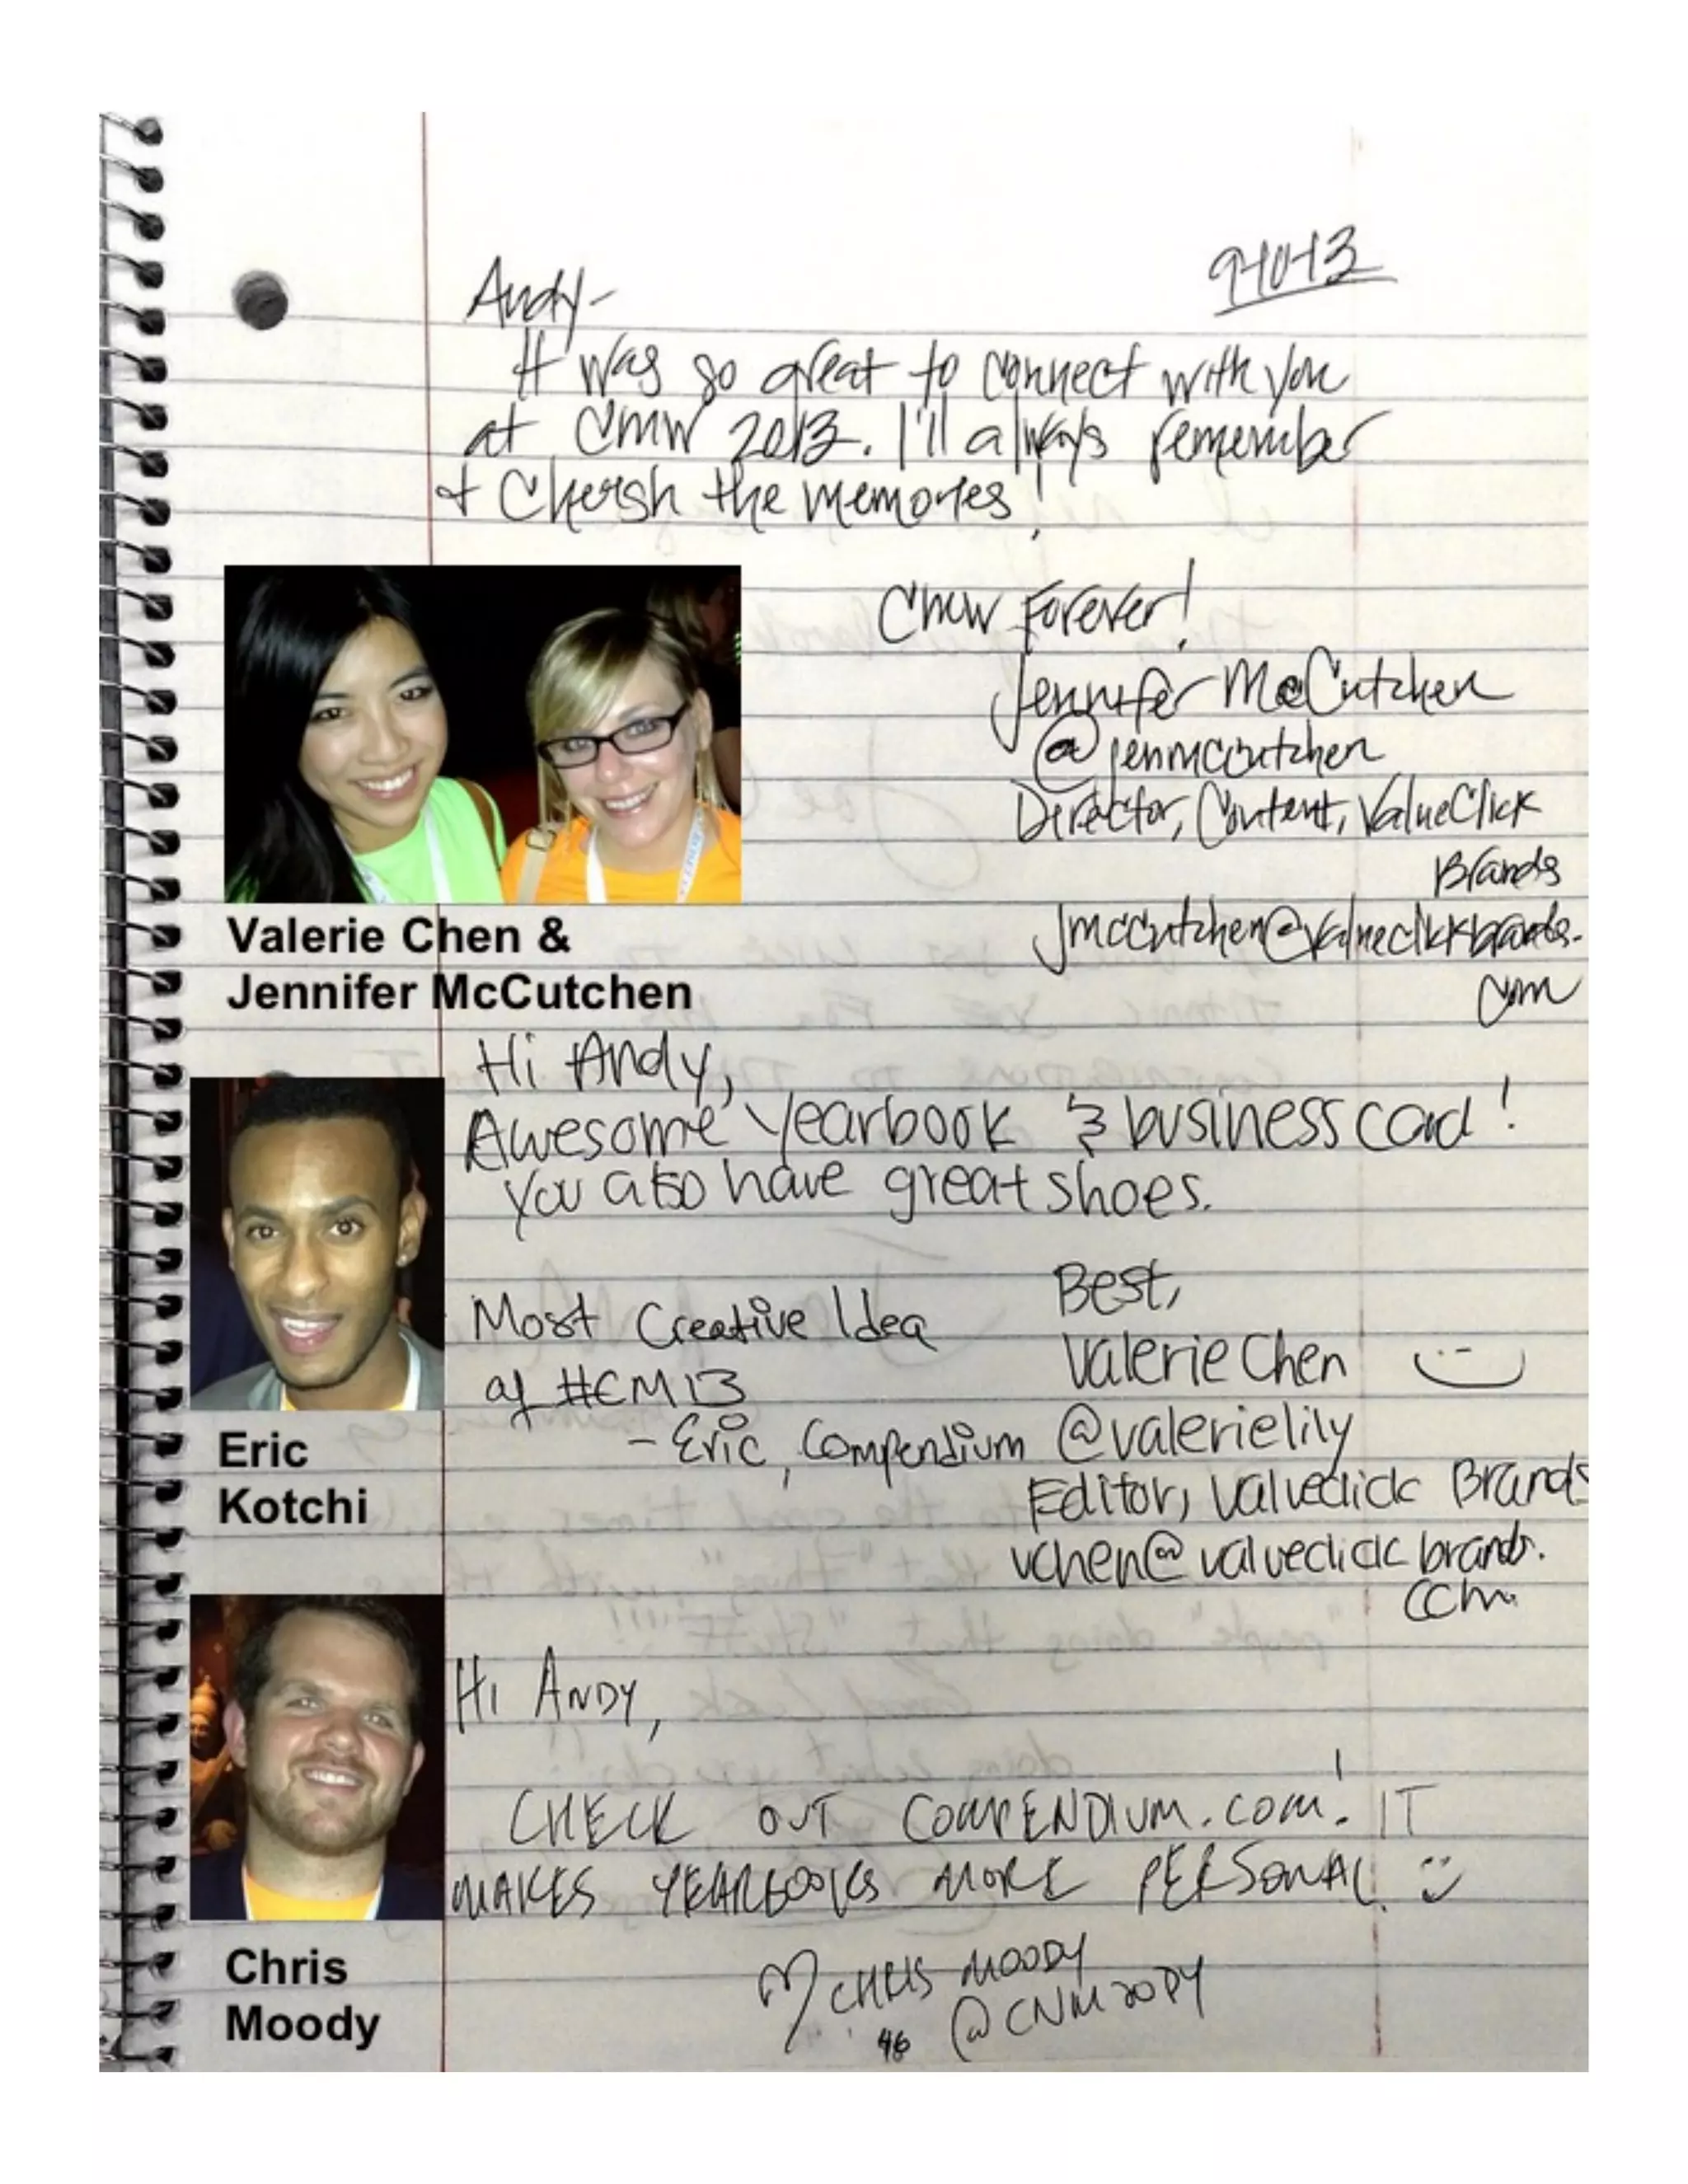 9-10-13
Andy-
It was so great to connect with you
at CMW 2013. I'll always remember
+ Chersh the memories!
CMW Forever!
Jennifer McCutchen
@jenmccutchen
Director, Content, ValueClick
Brands
jmccutchen@valueclickbrands.
com
Valerie Chen &
Jennifer McCutchen
Hi Andy,
Awesome yearbook & business card!
You also have great shoes.
Best,
Valerie Chen
@valerielily
Editor, Valueclick Brands
vchen@valueclickbrands.
com
Most Creative Idea
of #CM13
- Eric, Compendium
Eric
Kotchi
Hi Andy,
CHECK OUT COMPENDIUM.COM! IT
MAKES YEARBOOKS MORE PERSONAL. :)
CHRIS MOODY
@CNMOODY
46
Chris
Moody